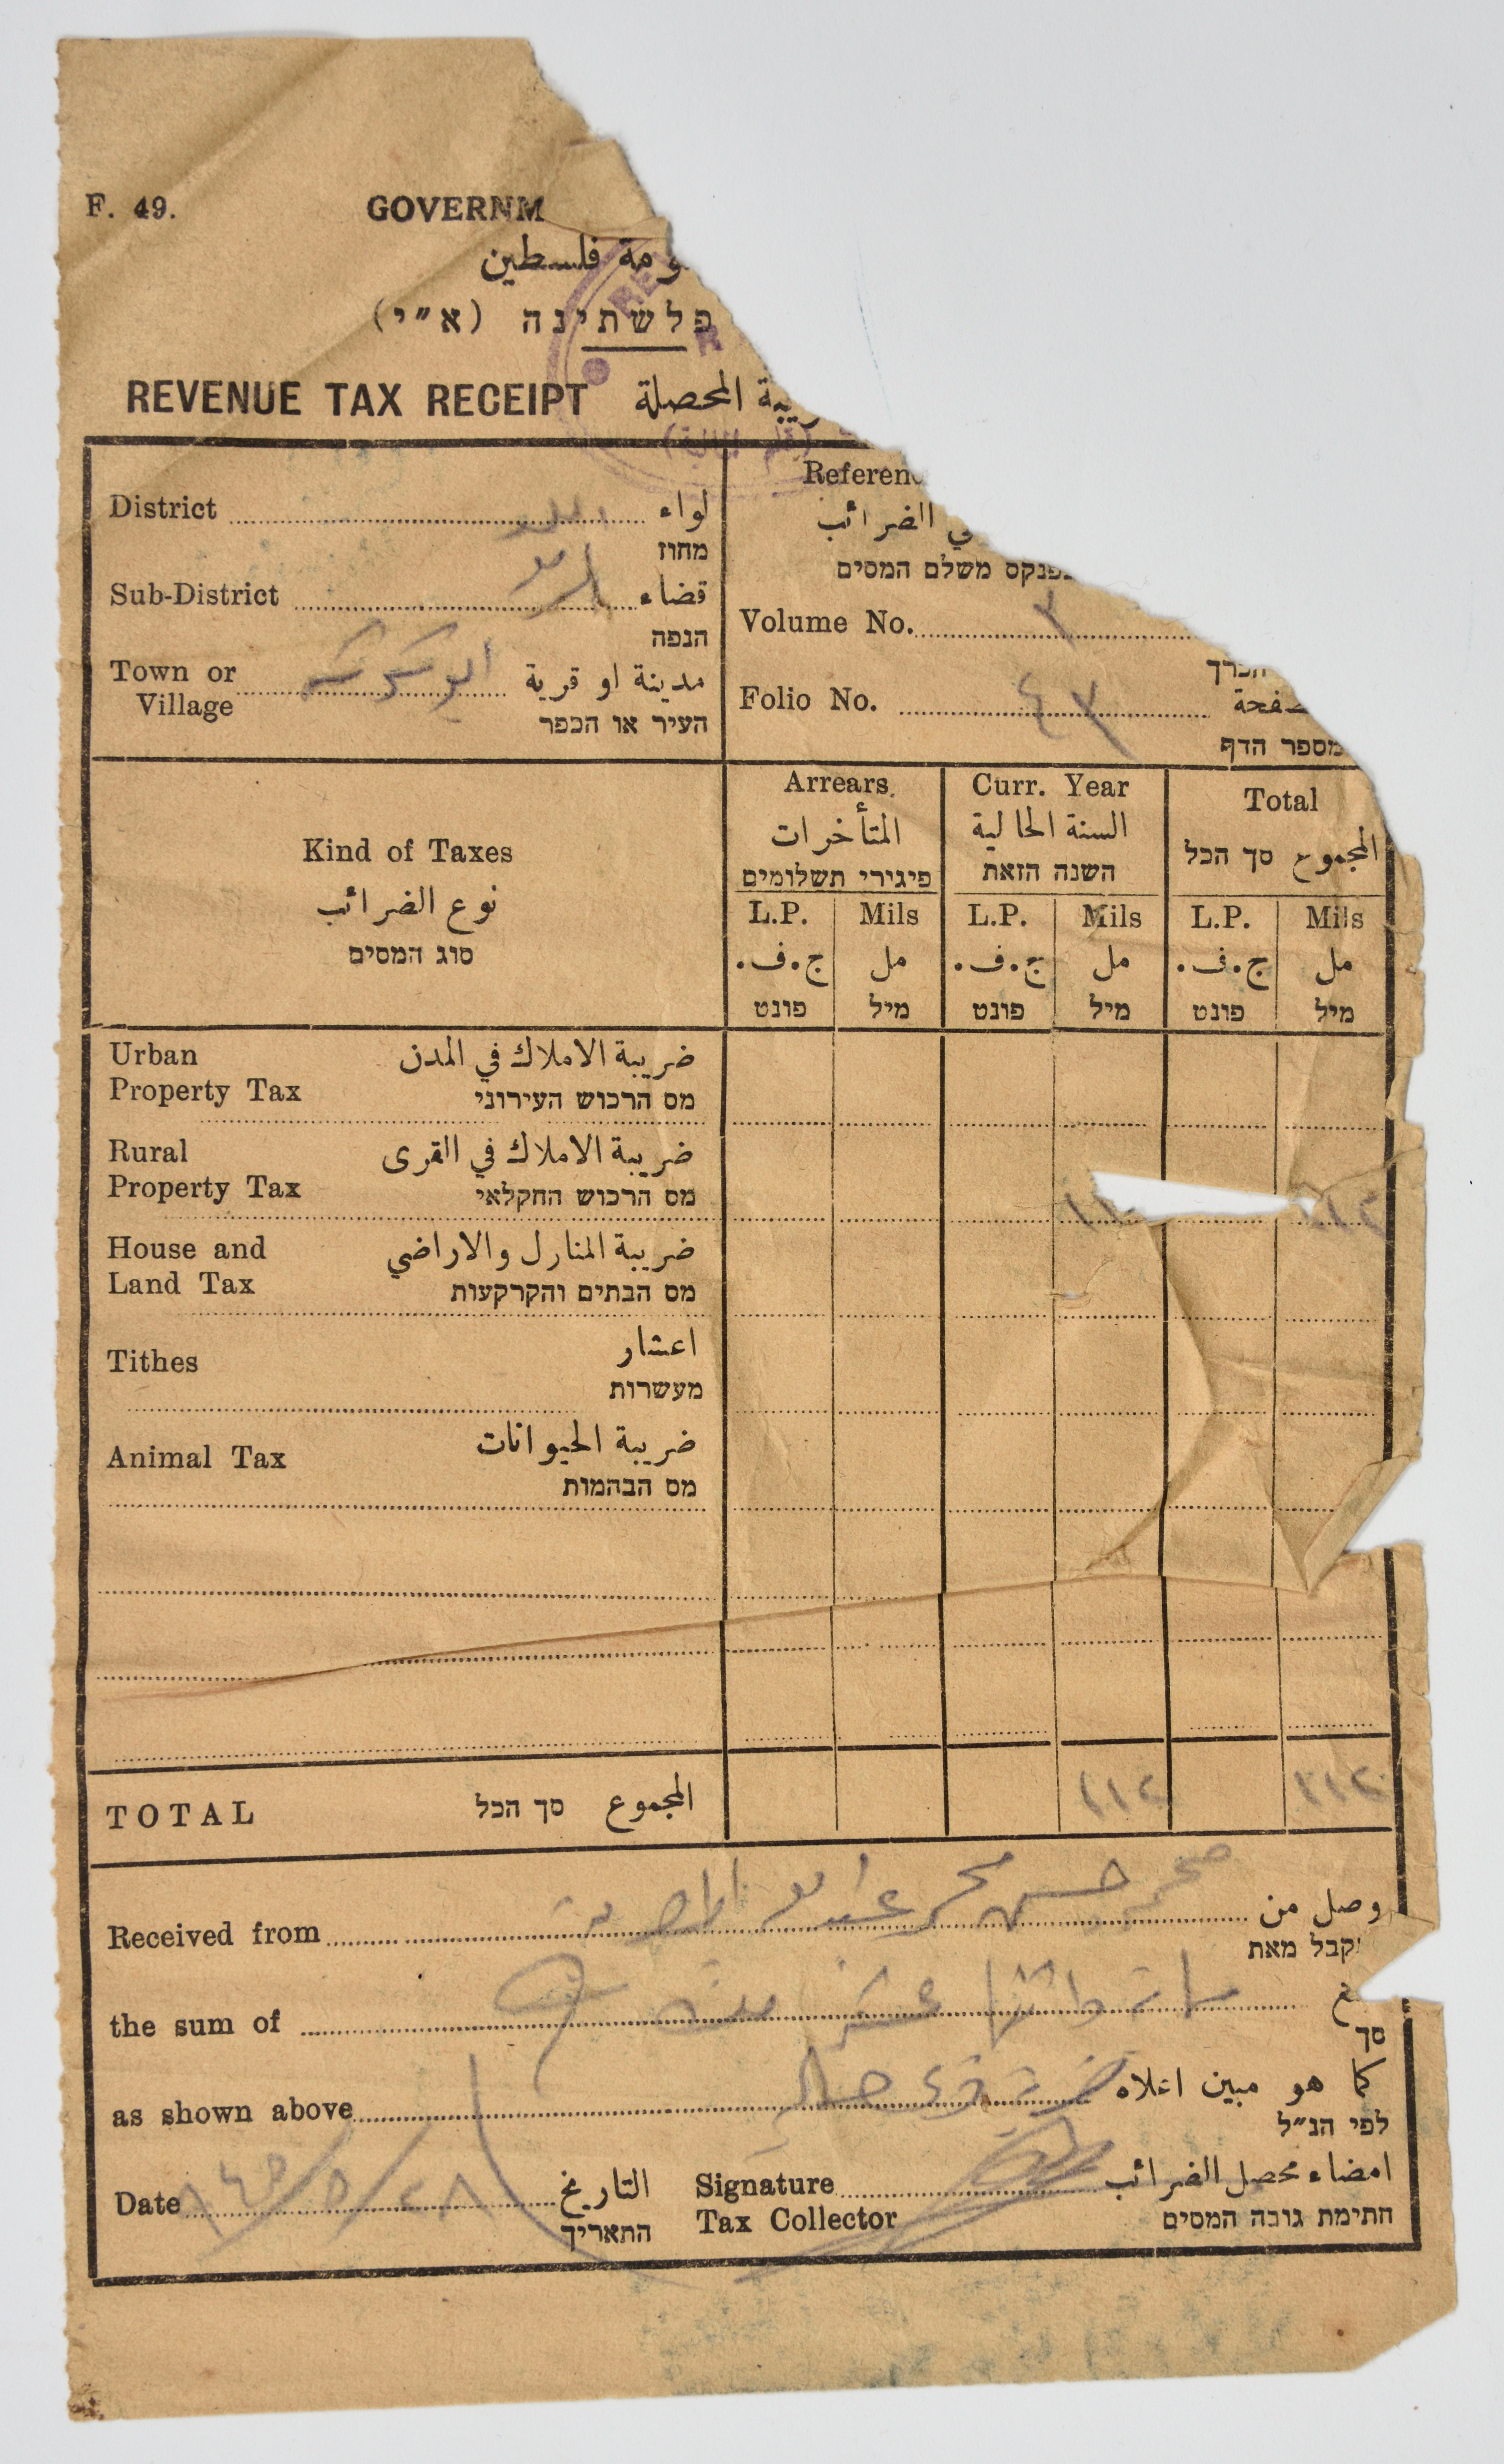 F. 49.
GOVERNM
ومة فلسطين
פלשתינה (א״י)
REVENUE TAX RECEIPT يبة المحصلة
(قلم المالية)
District لواء
מחוז
Sub-District قضاء
הנפה
Town or Village ابو كشك مدينة او قرية
העיר או הכפר
Referenc
ي الضرائب
בפנקס משלם המסים
Volume No. ٢
הכרך
Folio No. ٤٢ صفحة
מספר הדף
Kind of Taxes
نوع الضرائب
סוג המסים
Arrears.
المتأخرات
פיגירי תשלומים
Curr. Year
السنة الحالية
השנה הזאת
Total
المجموع סך הכל
L.P. Mils L.P. Mils L.P. Mils
ج.ف. مل ج.ف. مل ج.ف. مل
פונט מיל פונט מיל פונט מיל
Urban ضريبة الاملاك في المدن
Property Tax מס הרכוש העירוני
Rural ضريبة الاملاك في القرى
Property Tax מס הרכוש החקלאי
House and ضريبة المنازل والاراضي
Land Tax מס הבתים והקרקעות
Tithes اعشار
מעשרות
Animal Tax ضريبة الحيوانات
מס הבהמות
TOTAL المجموع סך הכל ٢١٢ ٢١٢
Received from محمد حسن محمد وصل من
קבל מאת
the sum of عشر
סך
as shown above كما هو مبين اعلاه
לפי הנ״ל
Date ٢٨/٥/٩٤٥ التاريخ
התאריך
Signature امضاء محصل الضرائب
Tax Collector חתימת גובה המסים